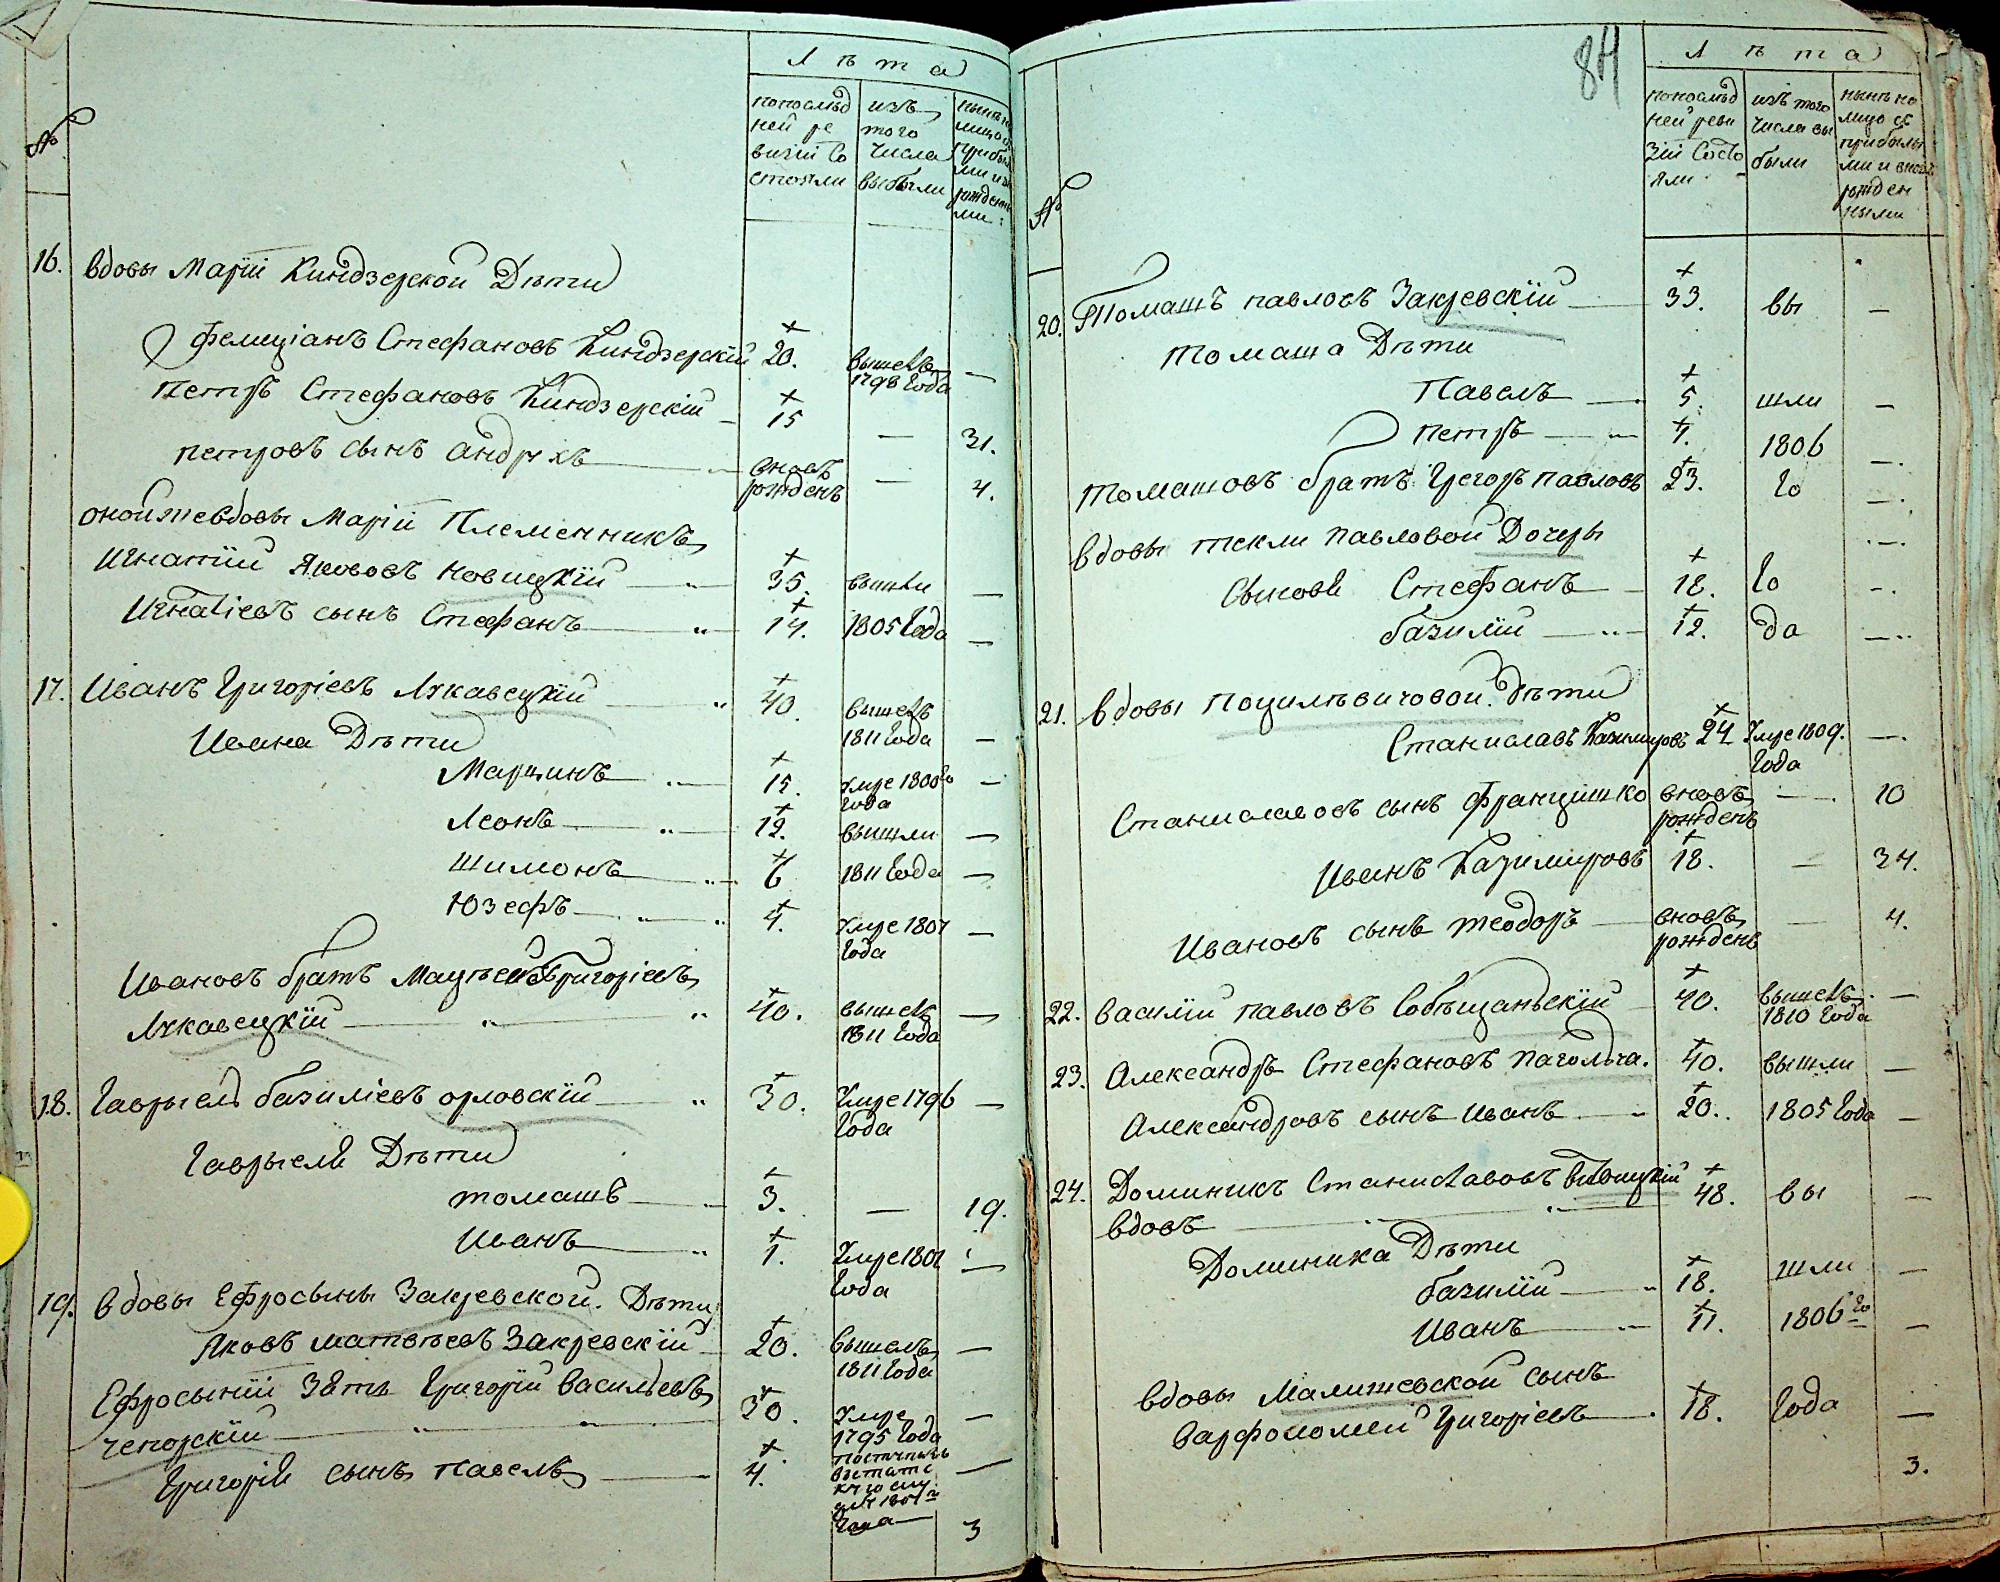 Лѣта
№
попослѣд
ней ре
визіи Со
стояли
изъ
того
числа
выбыли
16. вдовы Маріи Киндзерской Дѣти
Фелиціанъ Стефановъ Киндзерскій 20. вышелъ 1798 Года —
Петръ Стефановъ Киндзерскій — 15 — 31.
петровъ сынъ андрхъ — вновь рожденъ — 4.
онойжевдовы Маріи Племенникъ
Игнатій Яковов Новицкій 35. вышли —
Игнатіевъ сынъ Стефанъ 14. 1805 Года —
17. Иванъ Григоріевъ Лукавецкій 40. вышелъ 1811 Года —
Ивана Дѣти
Марцинъ 15. умре 1800го Года —
Леонъ 12. вышли —
Шимонъ 6 1811 Года —
Юзефъ 4. умре 1807 Года —
Ивановъ братъ Мацѣей Григоріевъ
Лукавецкій 40. вышелъ 1811 Года —
18. Гаврыель базиліевъ орловскій 30. Умре 1796 Года —
Гаврыеля Дѣти
томашъ 3. — 19.
Иванъ 1. Умре 1801 Года —
19. вдовы Ефросыны Закревской. Дѣти
Яковъ матвѣевъ Закревскій 20. вышелъ 1811 Года —
Ефросыніи Зять Григорій васильевъ
чепорскій 30. Умре 1795 Года —
Григорія сынъ павелъ 4. —
Года — 3
84
Лѣта
№
попослѣд
ней реви
зіи Состо
яли
изъ того
числа вы
были
нынѣ на
лицо съ
прибылы
ми и вновь
рожден
ными
20. Томашъ павловъ Закревскій — 33. вы —
томаша Дѣти
Павелъ — 5. шли —
петръ — 1. 1806 —
томашовъ братъ Грегоръ павловъ 23. го —
вдовы текли павловой Дочеры
Сынове Стефанъ — 18. го —
базилій — 12. да —
21. вдовы поцилѣвичовой. дѣти
Станиславъ Казимировъ 24 Умре 1809. Года —
Станиславовъ сынъ францишко вновь рожденъ — 10
Иванъ Казимировъ 18. — 34.
Ивановъ сынъ теодоръ — вновь рожденъ — 4.
22. василій павловъ Собѣщаньскій 40. вышелъ 1810 Года —
23. Александръ Стефановъ паголь ча. 40. вышли —
Александровъ сынъ иванъ — 20. 1805 Года —
24. Доминикъ Станиславовъ 48. вы —
вдовъ
Доминика Дѣти
базилій 18. шли —
Иванъ 11. 1806го —
вдовы Малишевской сынъ
варфоломей Григоріевъ 18. Года —
3.